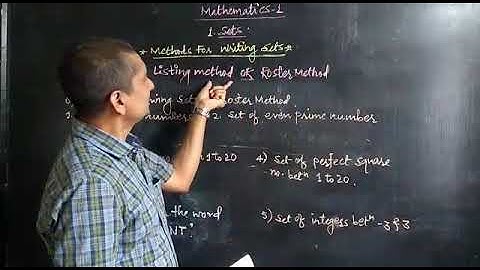 Mathematics-1
1. Sets.
* Methods For Writing Sets *
Listing method or Roster Method
wing Set Roster Method.
numbers 2. Set of even prime number
1 To 20 4) Set of perfect square
no. betn 1 To 20.
the word
NT." 5) Set of integers betn -3 & 3